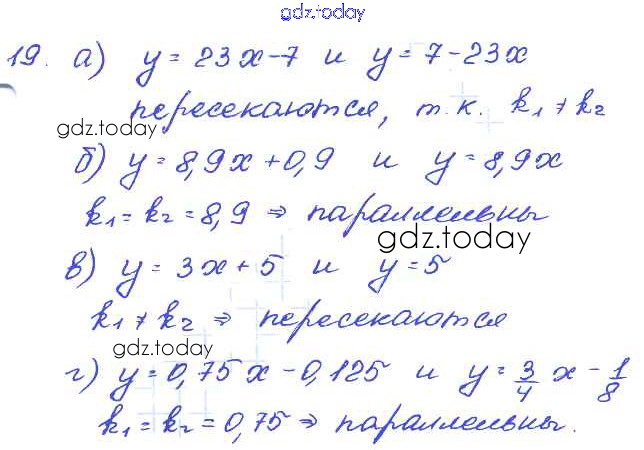 gdz.today
19. а) y = 23x - 7 и y = 7 - 23x
пересекаются, т.к. k₁ ≠ k₂
gdz.today
б) y = 8,9x + 0,9 и y = 8,9x
k₁ = k₂ = 8,9 ⇒ параллельны
gdz.today
в) y = 3x + 5 и y = 5
k₁ ≠ k₂ ⇒ пересекаются
gdz.today
г) y = 0,75x - 0,125 и y = 3/4 x - 1/8
k₁ = k₂ = 0,75 ⇒ параллельны.